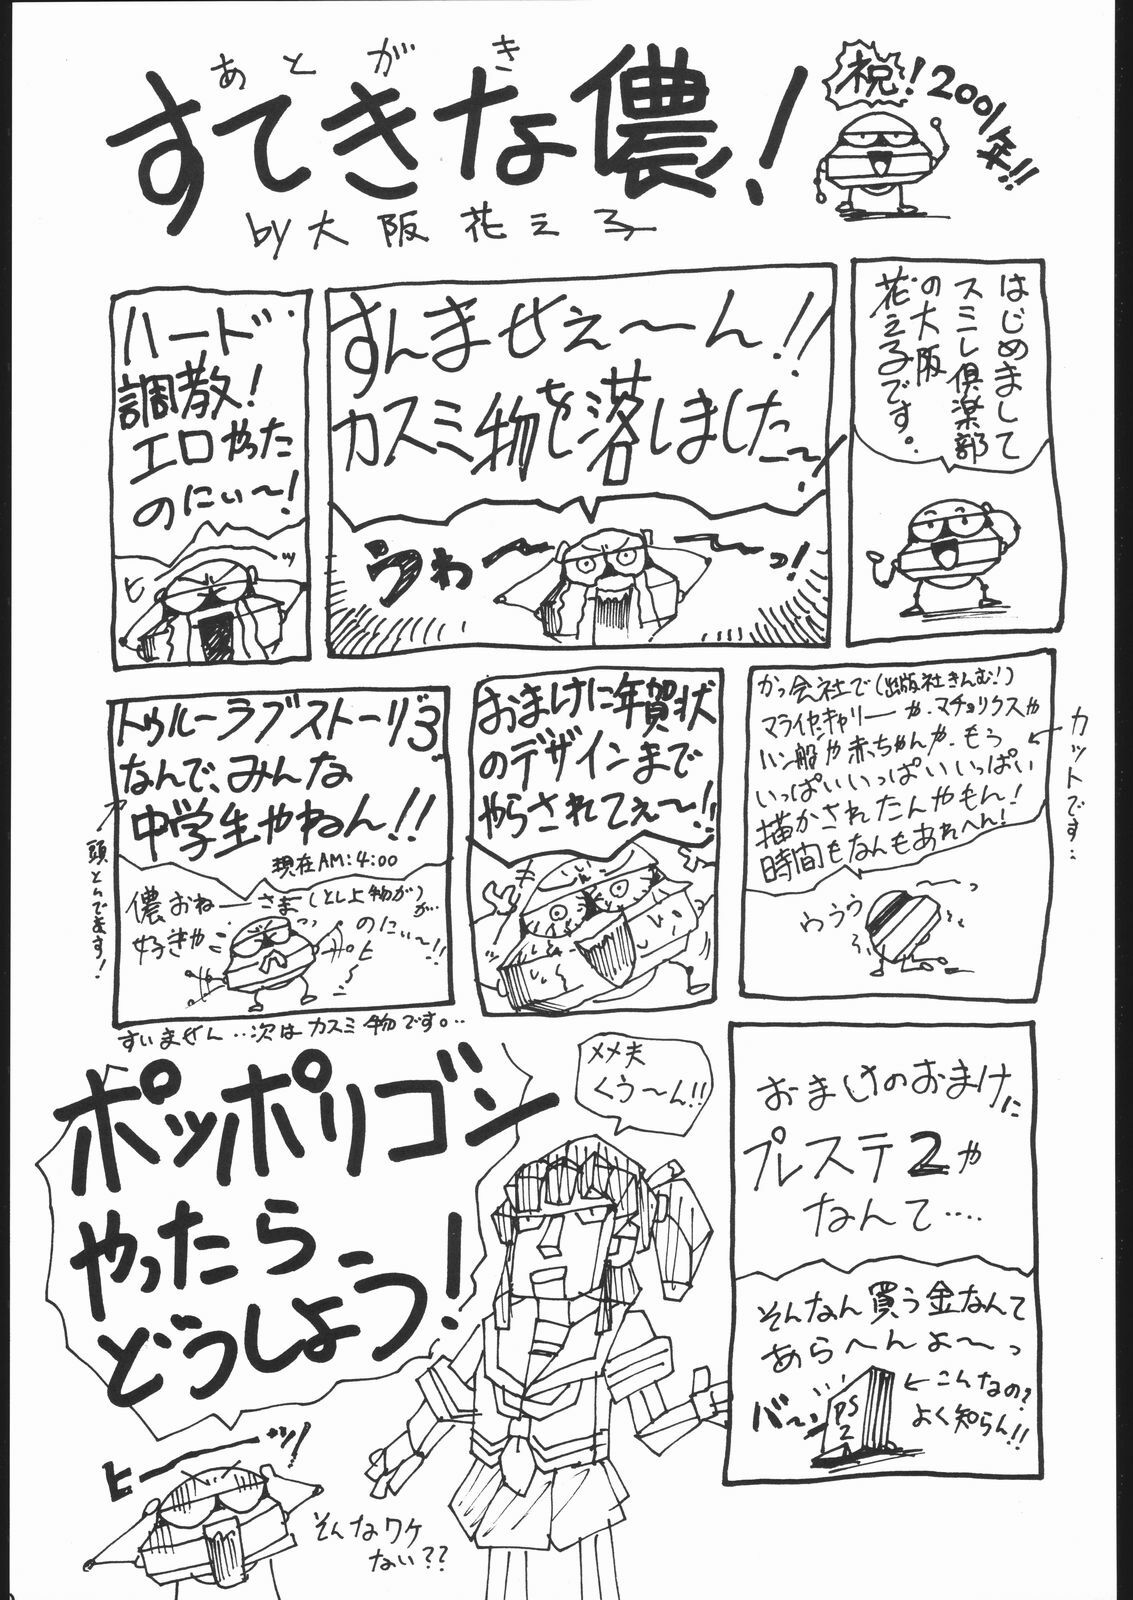 あとがき
すてきな儂！
by大阪花え子
祝！2001年!!
はじめまして
スミレ倶楽部
の大阪
花え子です。
すんませぇ〜ん!!
カスミ物を落しました〜！
うわ〜〜っ！
ハード
調教！
エロやった
のにぃ〜！
ヒーッ
かつ会社で（出版社きんむ！）
マライヤ・キャリーや、マチョリクスや
ハン船や赤ちゃんや、もう
いっぱいいっぱいいっぱい
描かされたんやもん！
時間もなんもあれへん！
←カットです…
ううう〜っ
おまけに年賀状
のデザインまで
やらされてぇ〜!!
トゥルーラブストーリー3
なんで、みんな
中学生やねん!!
現在AM:4:00
頭とんでます！
儂おねーさま（とし上物が）が…
好きや
のにぃ〜!!
すいません…次はカスミ物です。…
おまけのおまけに
プレステ2や
なんて….
そんなん買う金なんて
あらへんよ〜っ
バーン
PS
2
←こんなの？
よく知らん!!
メメ夫
くう〜ん!!
ポッポリゴン
やったら
どうしよう！
ヒーッ！
そんなワケ
ない??